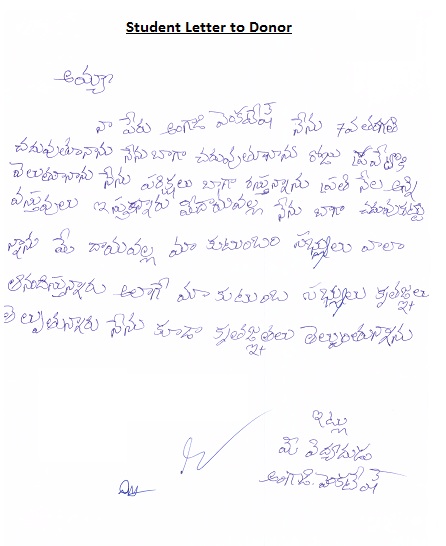 Student Letter to Donor
అయ్యా
నా పేరు అంగాడి వెంకటేష్ నేను 7వ తరగతి
చదువుతూనాను నేను బాగా చదువుతూనాను రోజు
వెలుతూనాను నేను పరిక్షలు బాగా రస్తున్నాను ప్రతి నెల అన్ని
వస్తువులు ఇస్తున్నారు నేను బాగా
న్నాను మీ దాయవల్ల మా కుటుంబ సభ్యులు చాలా
ఆనందిస్తున్నారు అలాగే మా కుటుంబ సభ్యులు కృతజ్ఞతలు
తెల్పుతున్నారు నేను కూడా కృతజ్ఞతలు తెల్పుంతున్నాను
ఇట్లు
మీ విద్యార్థుడు
అంగాడి. వెంకటేష్